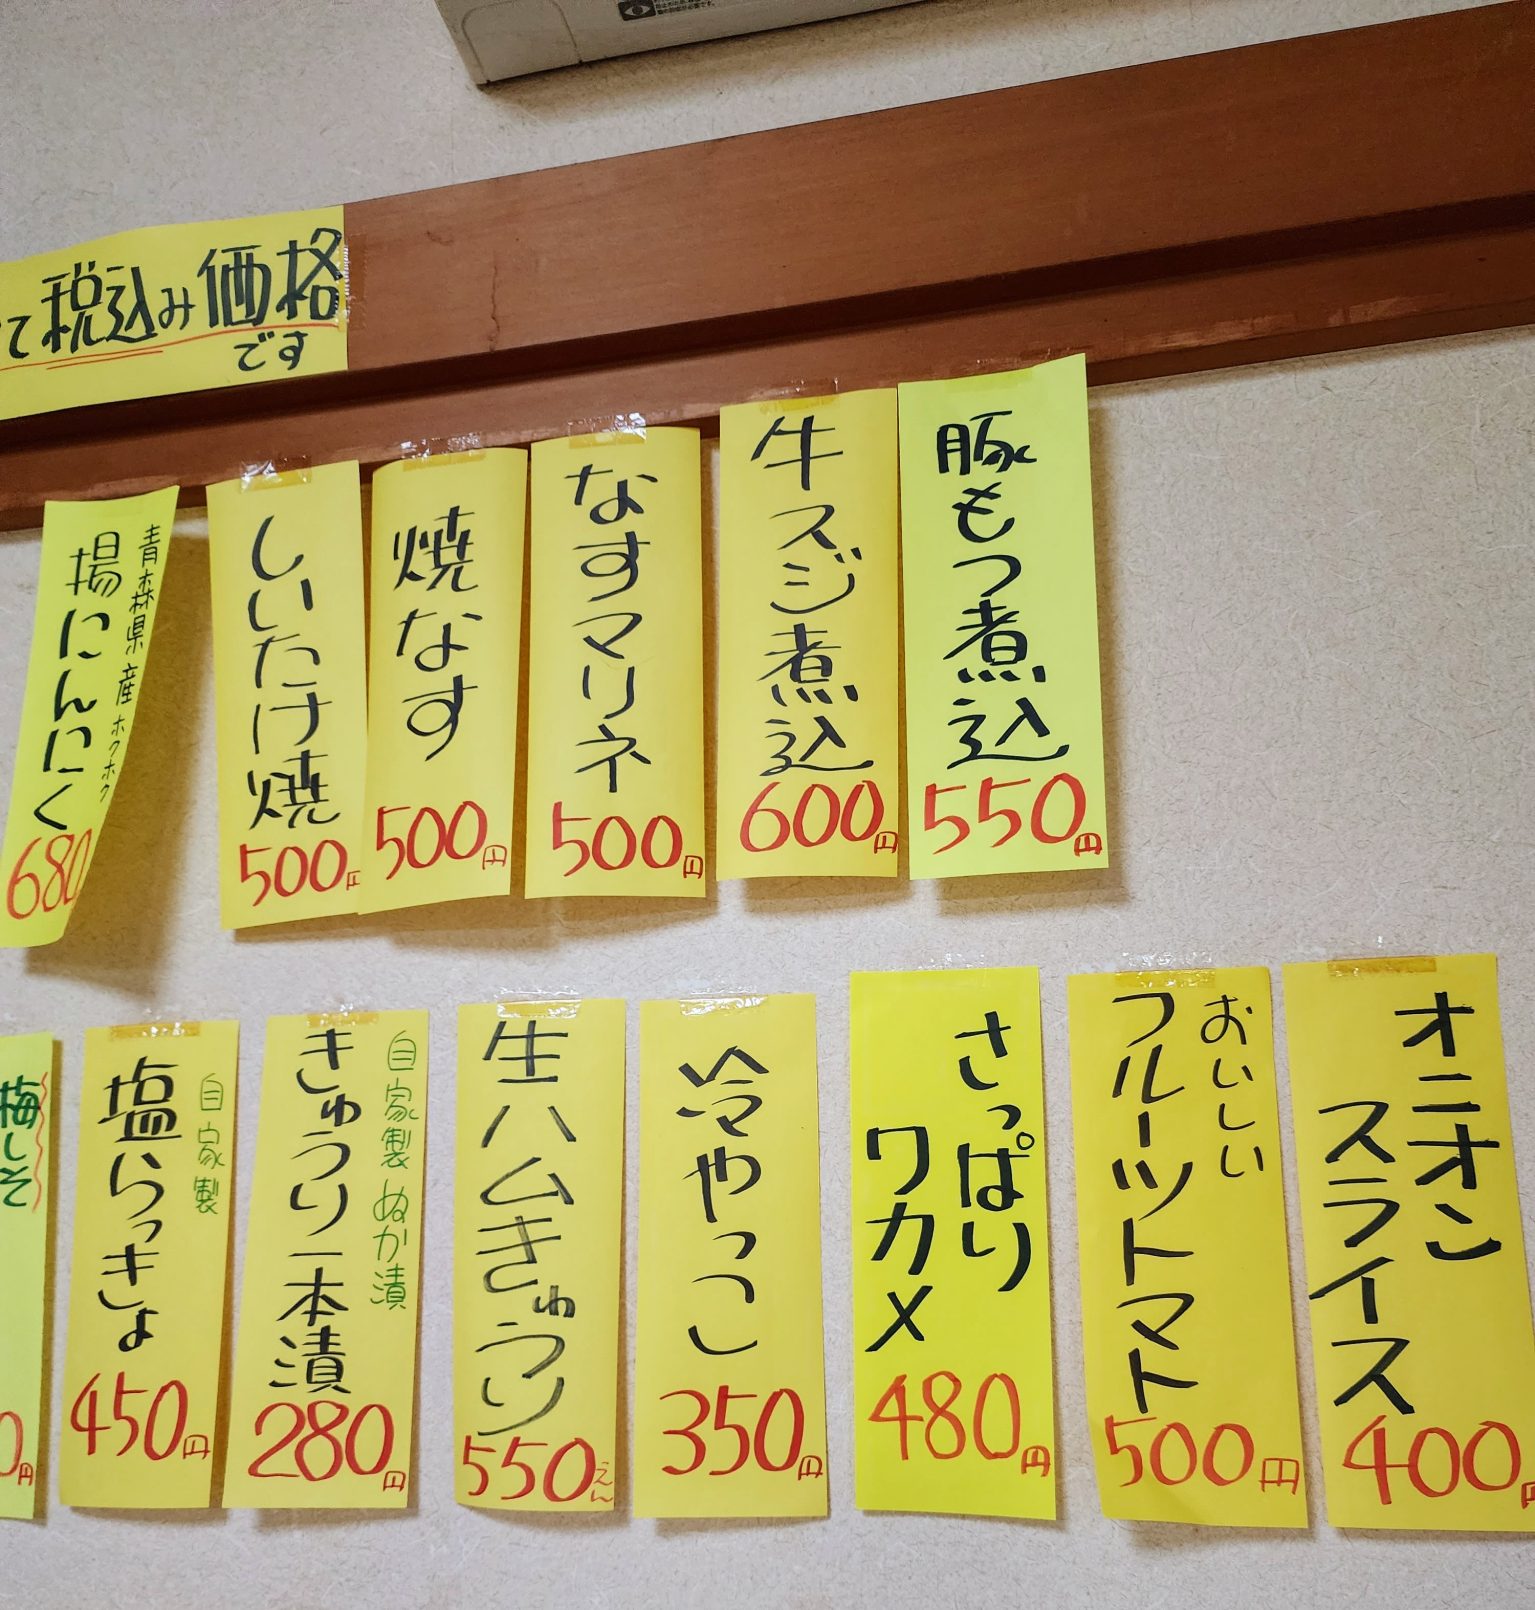 て税込み価格
です
豚もつ煮込
550円
牛スジ煮込
600円
なすマリネ
500円
焼なす
500円
しいたけ焼
500円
青森県産ホクホク
揚にんにく
680
オニオン
スライス
400円
おいしい
フルーツトマト
500円
さっぱり
ワカメ
480円
冷やっこ
350円
生ハムきゅうり
550えん
自家製ぬか漬
きゅうり一本漬
280円
自家製
塩らっきょ
450円
梅しそ
0円